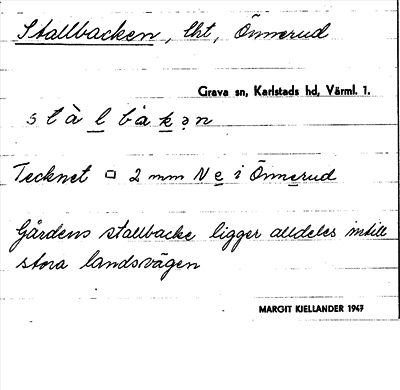 Stallbacken, lht, Önnerud
Grava sn, Karlstads hd, Värml. 1.
stàlbàkən
Tecknet □ 2 mm N e i Önnerud
Gårdens stallbacke ligger alldeles intill
stora landsvägen
MARGIT KJELLANDER 1947